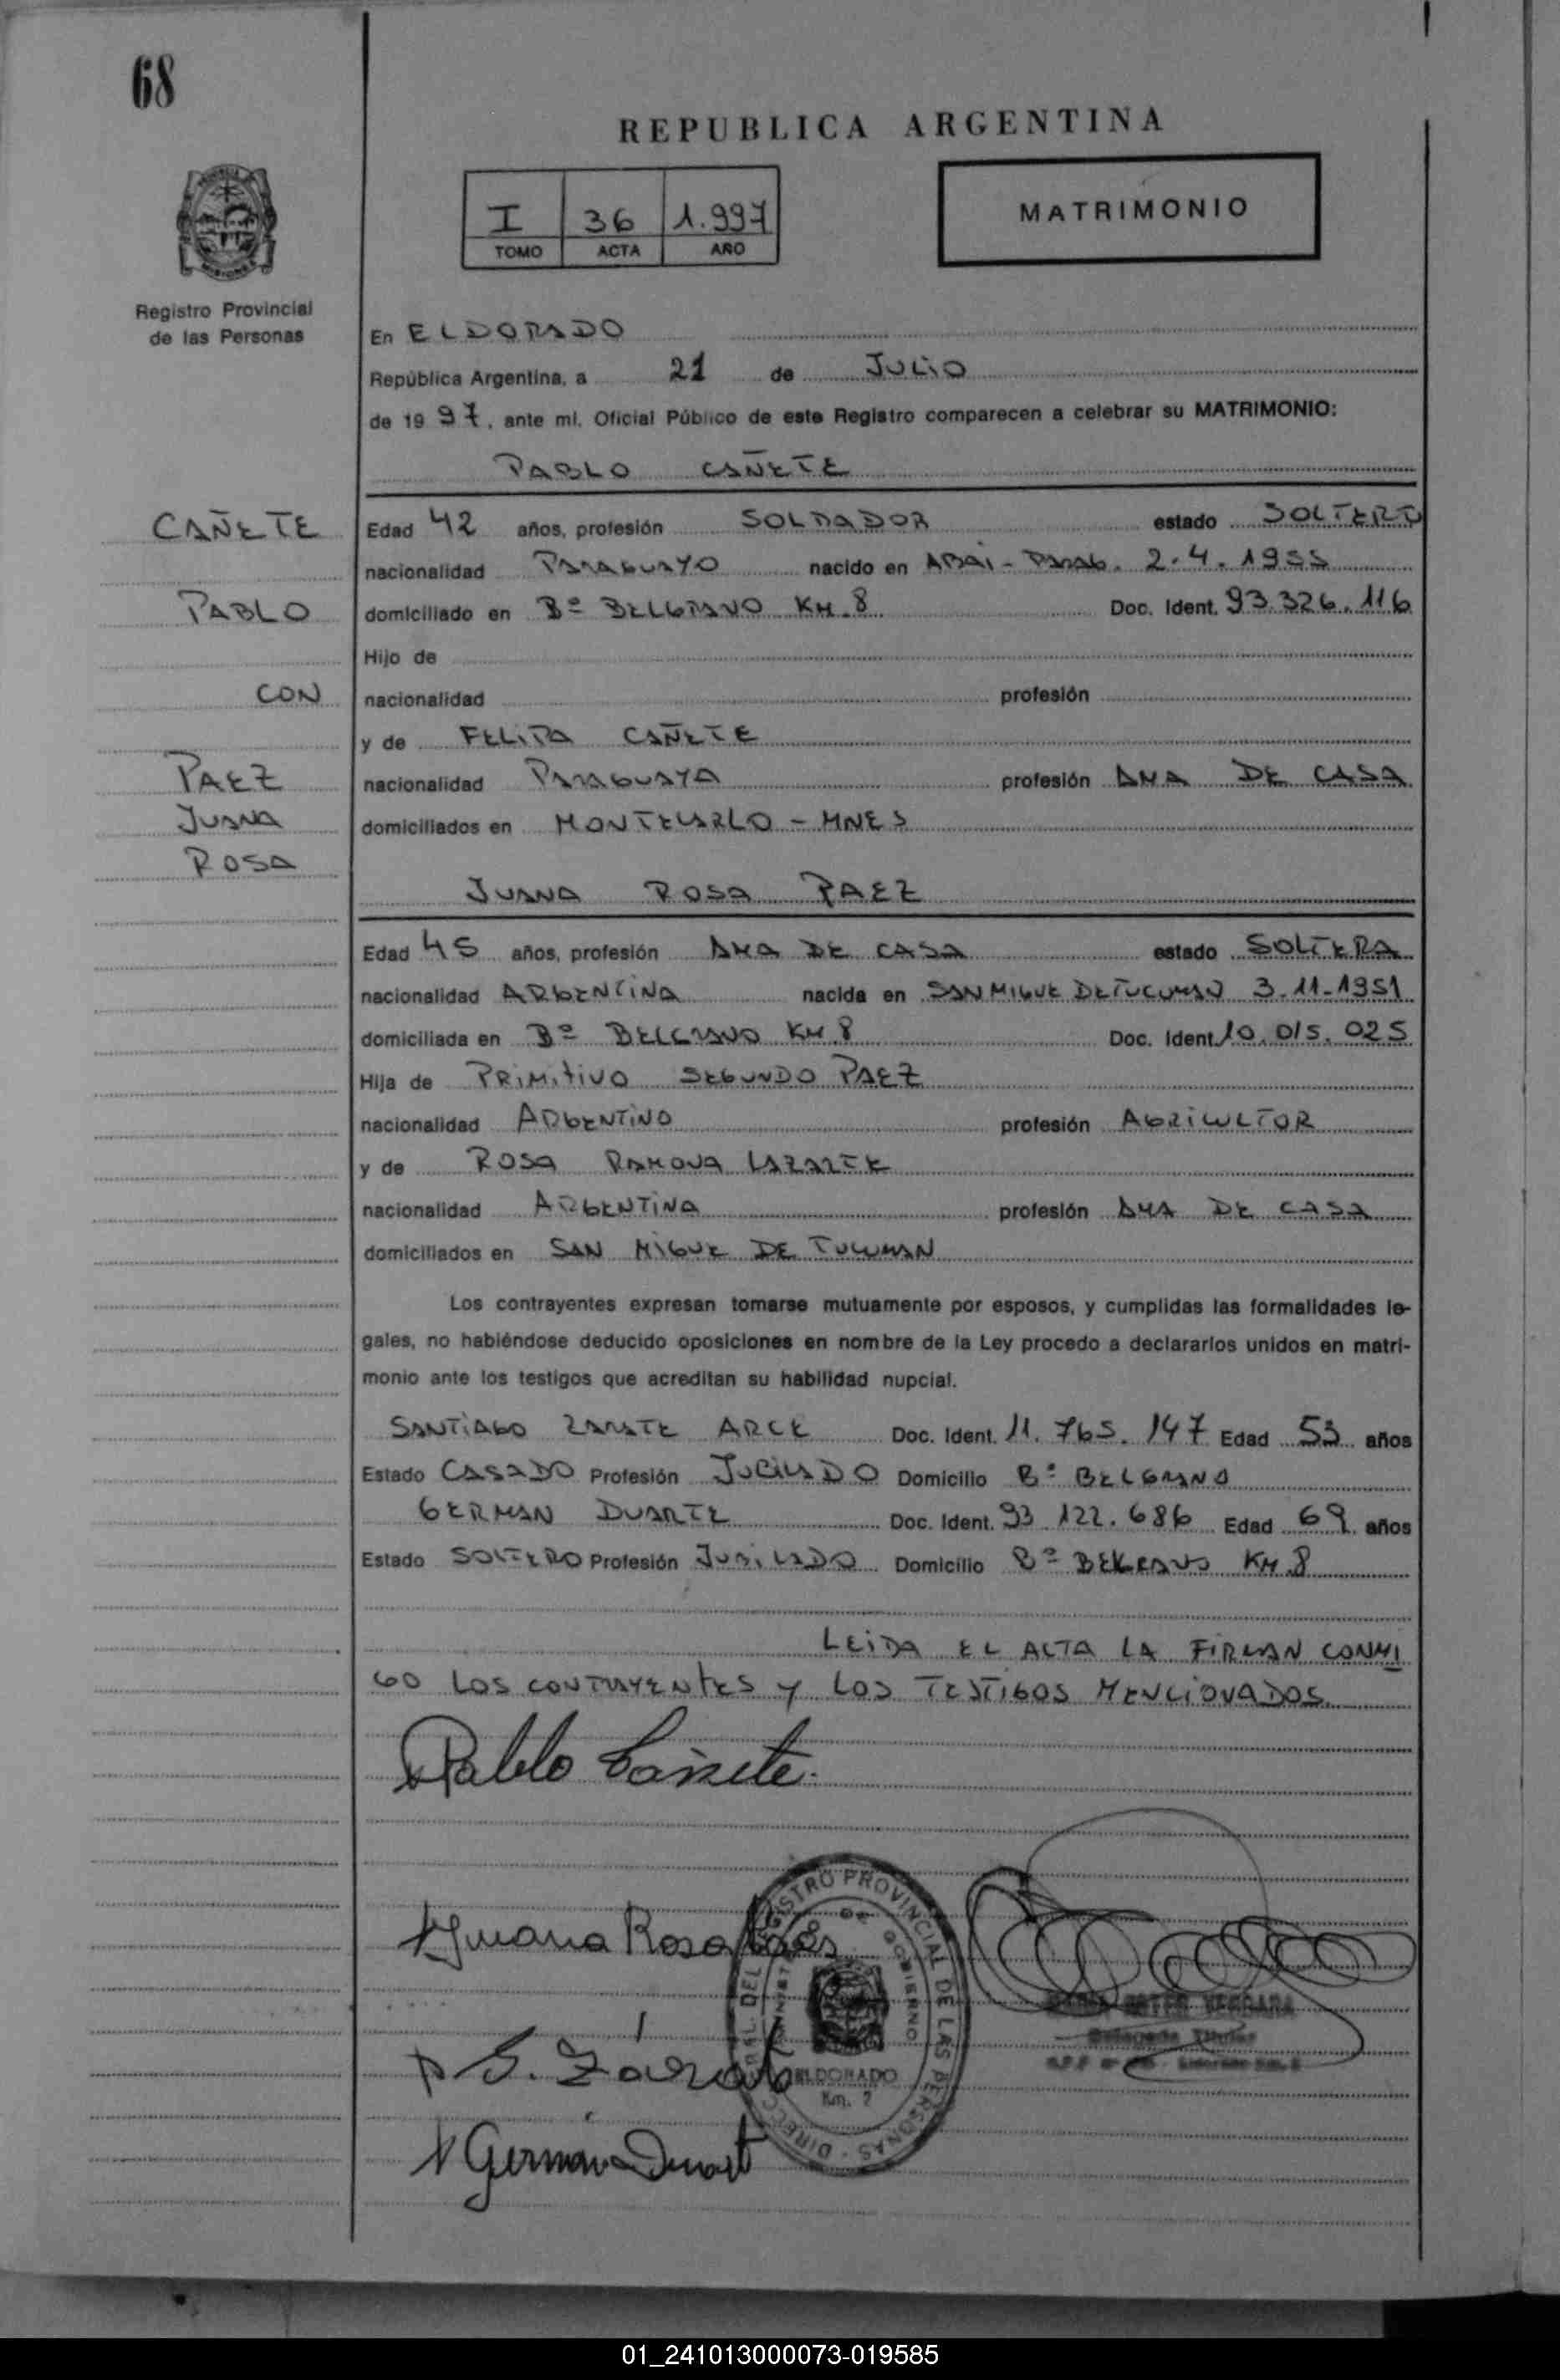 68
REPUBLICA ARGENTINA
I 36 1.997
TOMO ACTA AÑO
MATRIMONIO
Registro Provincial
de las Personas
En ELDORADO
República Argentina, a 21 de JULIO
de 1997, ante mí, Oficial Público de este Registro comparecen a celebrar su MATRIMONIO:
PABLO CAÑETE
CAÑETE
PABLO
CON
PAEZ
JUANA
ROSA
Edad 42 años, profesión SOLDADOR estado SOLTERO
nacionalidad PARAGUAYO nacido en ABAI - PARAG. 2.4.1955
domiciliado en Bº BELGRANO KM.8 Doc. Ident. 93.326.116
Hijo de
nacionalidad profesión
y de FELIPA CAÑETE
nacionalidad PARAGUAYA profesión AMA DE CASA
domiciliados en MONTECARLO - MNES
JUANA ROSA PAEZ
Edad 45 años, profesión AMA DE CASA estado SOLTERA
nacionalidad ARGENTINA nacida en SAN MIGUE DE TUCUMAN 3.11-1951
domiciliada en Bº BELGRANO KM.8 Doc. Ident. 10.015.025
Hija de PRIMITIVO SEGUNDO PAEZ
nacionalidad ARGENTINO profesión AGRICULTOR
y de ROSA RAMONA LAZARTE
nacionalidad ARGENTINA profesión AMA DE CASA
domiciliados en SAN MIGUE DE TUCUMAN
Los contrayentes expresan tomarse mutuamente por esposos, y cumplidas las formalidades le-
gales, no habiéndose deducido oposiciones en nombre de la Ley procedo a declararlos unidos en matri-
monio ante los testigos que acreditan su habilidad nupcial.
SANTIAGO ZARATE ARCE Doc. Ident. 11.765.147 Edad 53 años
Estado CASADO Profesión JUBILADO Domicilio Bº BELGRANO
GERMAN DUARTE Doc. Ident. 93.122.686 Edad 69 años
Estado SOLTERO Profesión JUBILADO Domicilio Bº BELGRANO KM.8
LEIDA EL ACTA LA FIRMAN CONMI
GO LOS CONTRAYENTES Y LOS TESTIGOS MENCIONADOS.
Pablo Cañete.
Juana Rosa
S. Zárate
German Duart
REGISTRO PROVINCIAL DE LAS PERSONAS - DIRECC
DE GOBIERNO
ELDORADO
Km.
ESTER VERGARA
Delegada Titular
01_241013000073-019585